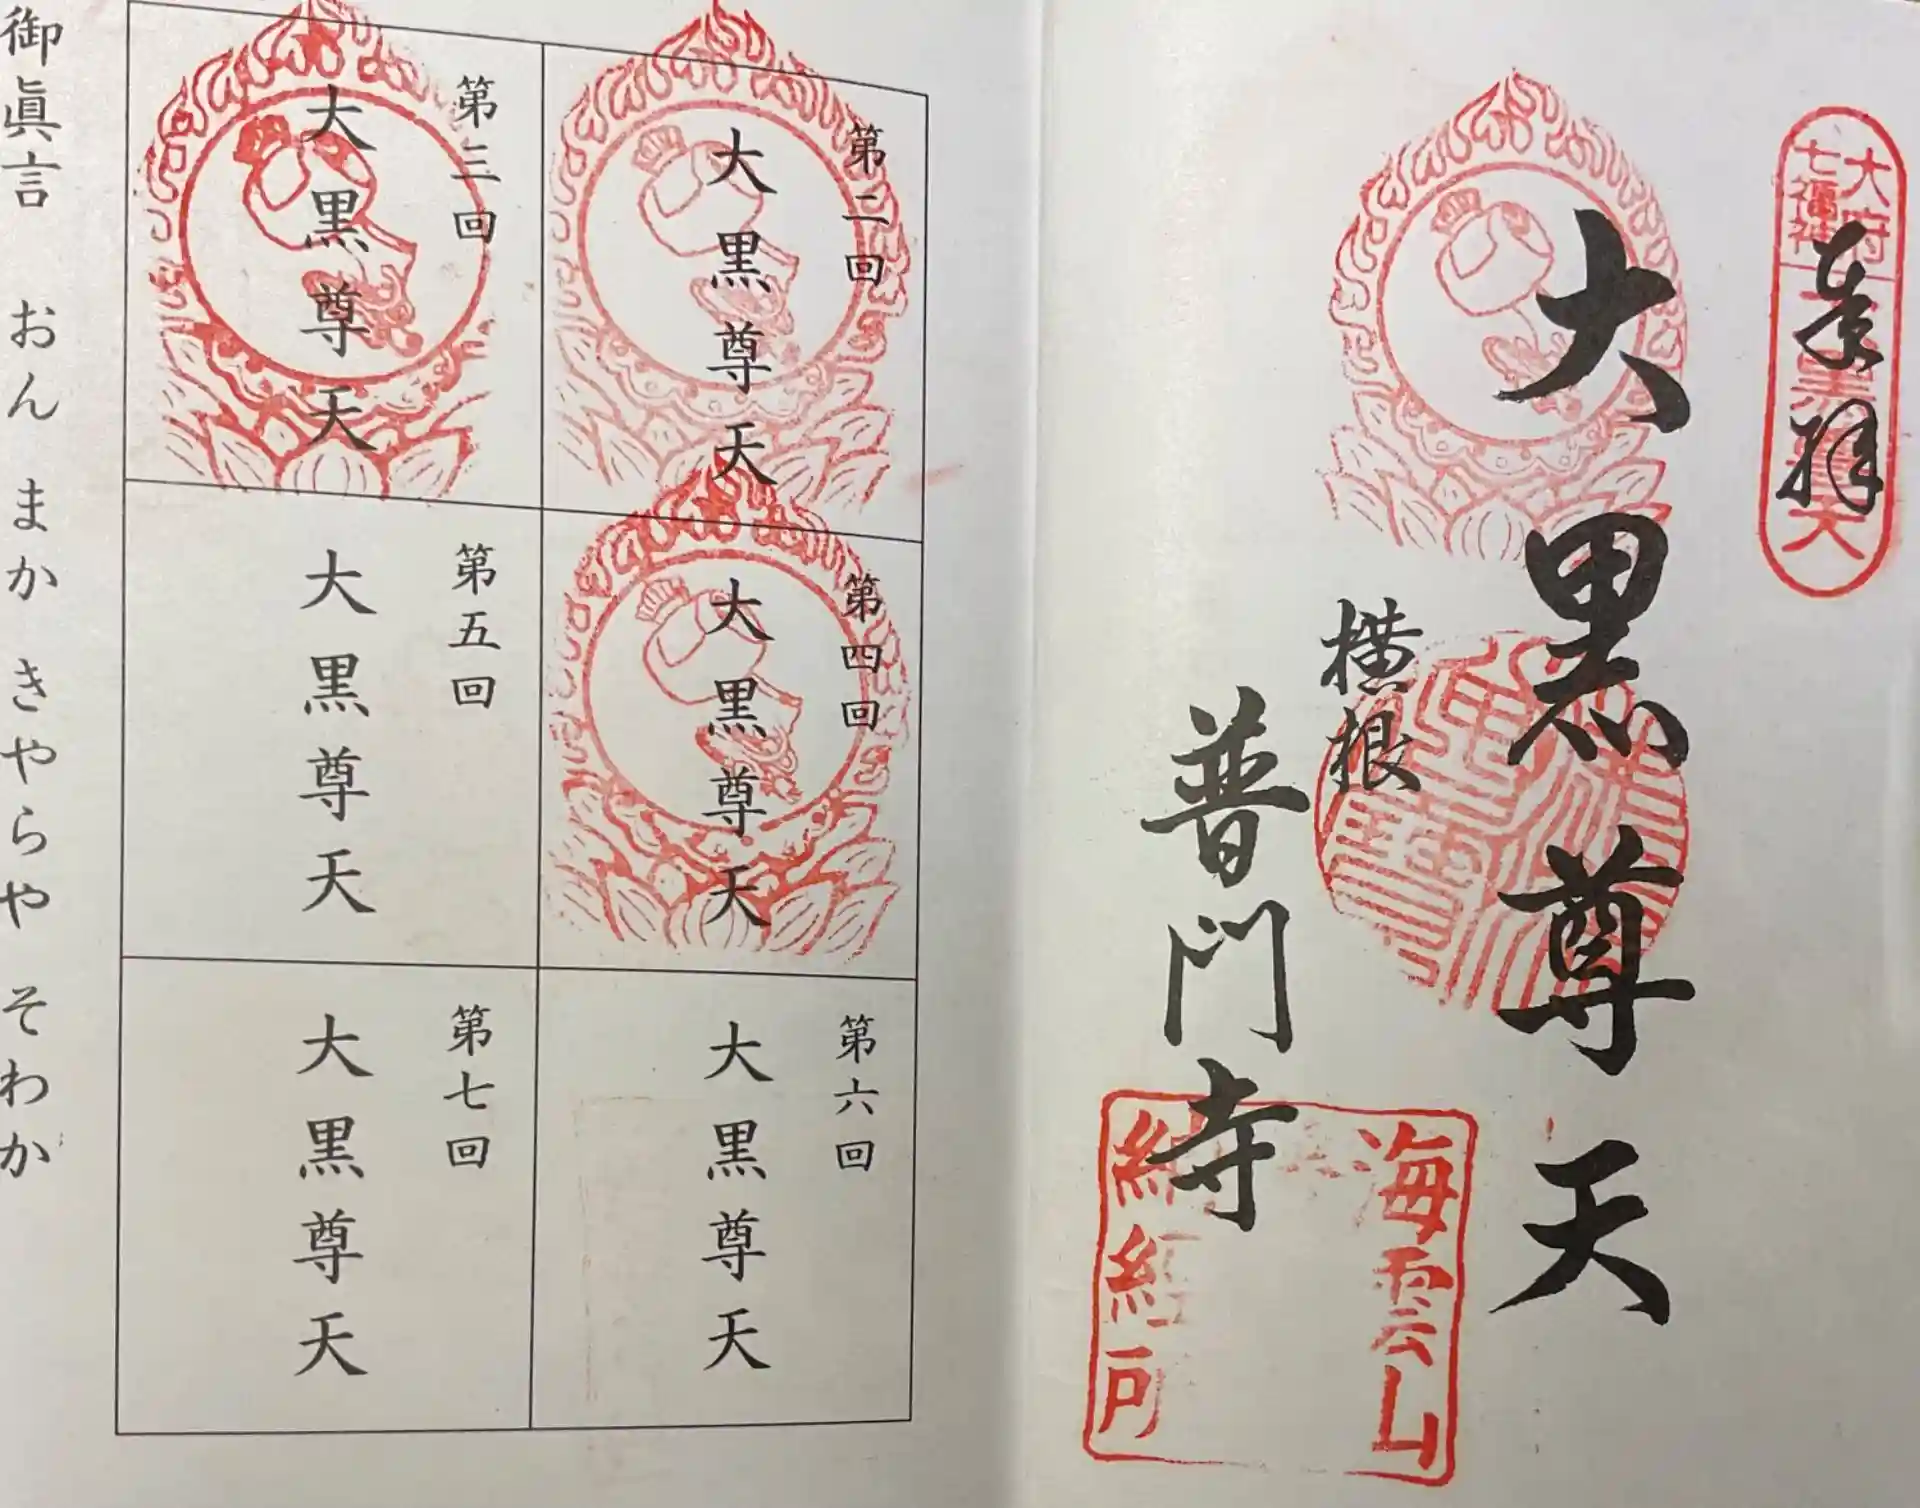 大府
七福神
大黒尊天
奉拝
大黒尊天
横根
普門寺
海雲山
納経印
第二回
大黒尊天
第三回
大黒尊天
第四回
大黒尊天
第五回
大黒尊天
第六回
大黒尊天
第七回
大黒尊天
御眞言　おん　まか　きやらや　そわか